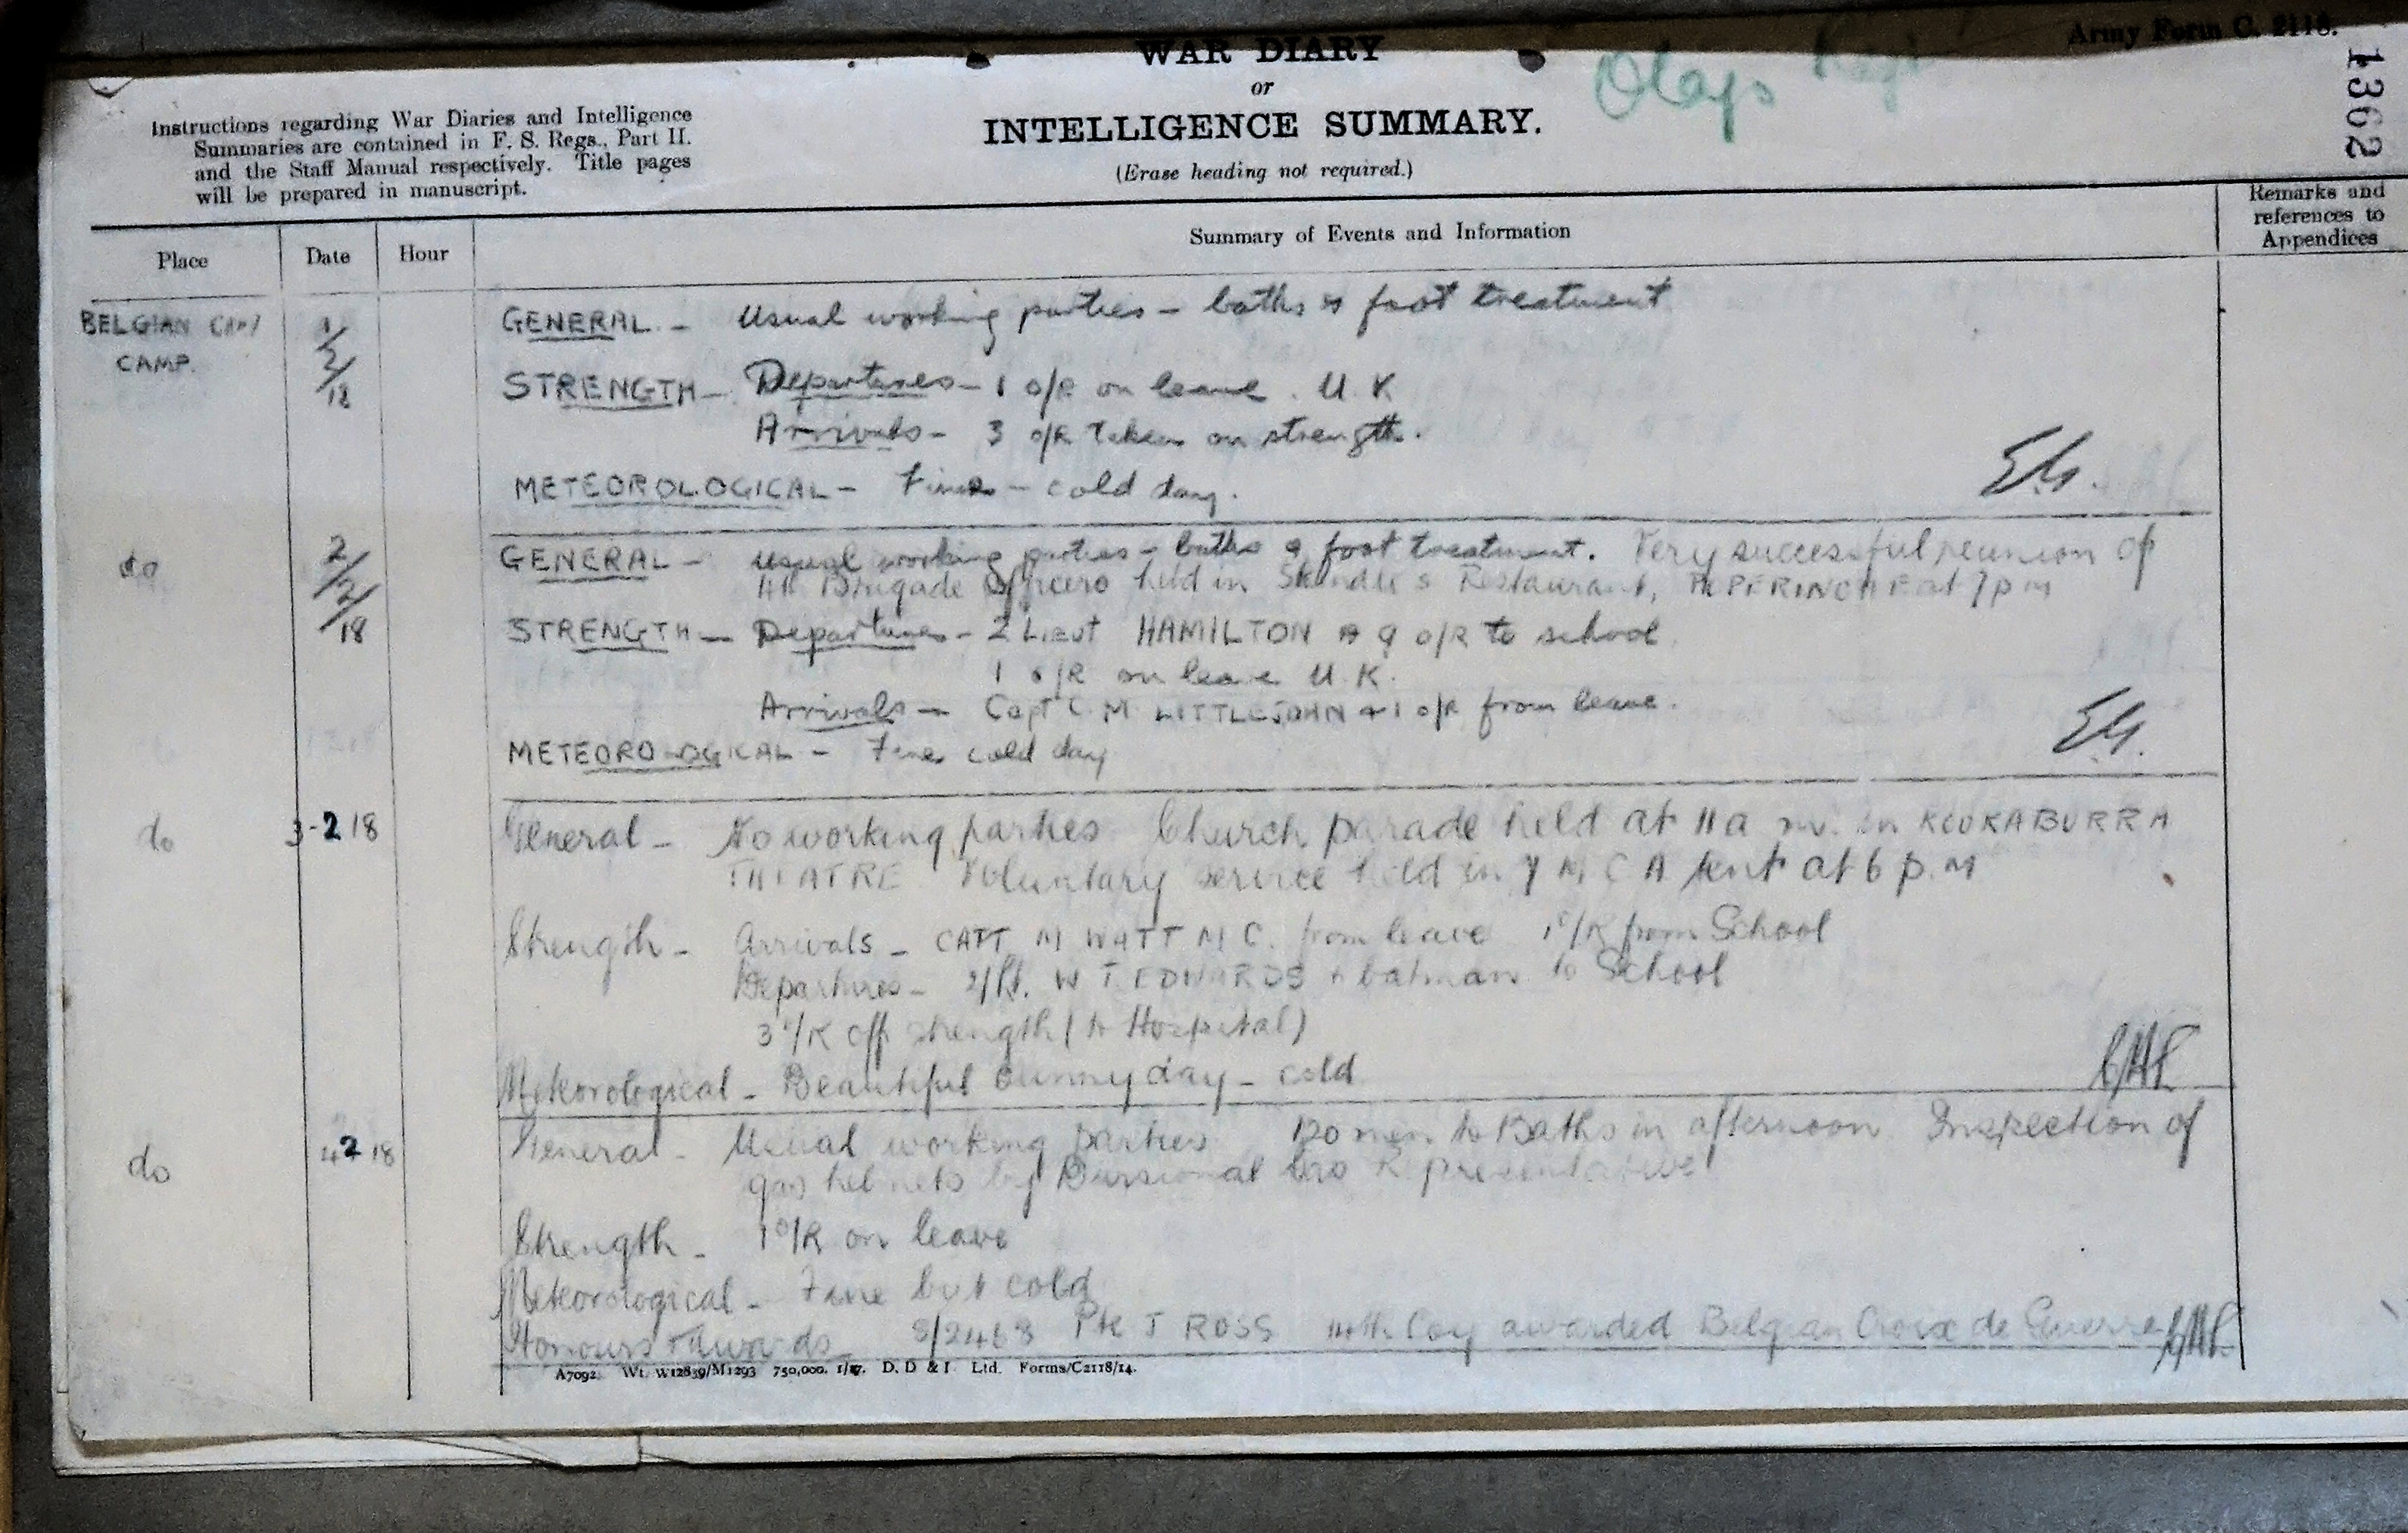 Army Form C. 2118.
WAR DIARY
or
INTELLIGENCE SUMMARY.
(Erase heading not required.)
1362
Instructions regarding War Diaries and Intelligence
Summaries are contained in F. S. Regs., Part II.
and the Staff Manual respectively. Title pages
will be prepared in manuscript.
Place Date Hour Summary of Events and Information Remarks and references to Appendices
BELGIAN
CAMP.
1/2/18
GENERAL - Usual working parties - baths & foot treatment
STRENGTH - Departures - 1 o/R on leave. U.K
Arrivals - 3 o/R taken on strength.
METEOROLOGICAL - Fine - cold day.
do 2/2/18
GENERAL - usual working parties - baths & foot treatment. Very successful reunion of
4th Brigade Officers held in Skindles Restaurant, at 7 pm
STRENGTH - Departures - 2 Lieut HAMILTON o/R to school
1 o/R on leave U.K.
Arrivals - Capt C. M. LITTLEJOHN + 1 o/R from leave.
METEOROLOGICAL - Fine cold day
do 3-2 18
General - No working parties Church parade held at 11 a m. in KOOKABURRA
THEATRE Voluntary service held in Y M C A tent at 6 p.m
Strength - Arrivals - CAPT M WATT M C. from leave 1 o/R from School
Departures - 2/Lt. W T EDWARDS + batman to School
3 o/R off strength (to Hospital)
Meteorological - Beautiful sunny day - cold
do 4 2 18
General - Usual working parties 120 men to Baths in afternoon Inspection of
gas helmets by Divisional Gas Representative
Strength - 1 o/R on leave
Meteorological - Fine but cold
Honours & Awards 8/2468 Pte J ROSS 14th Coy awarded Belgian Croix de Guerre
A7092. Wt. W12859/M1293 750,000. 1/17. D. D & L Ltd. Forms/C2118/14.